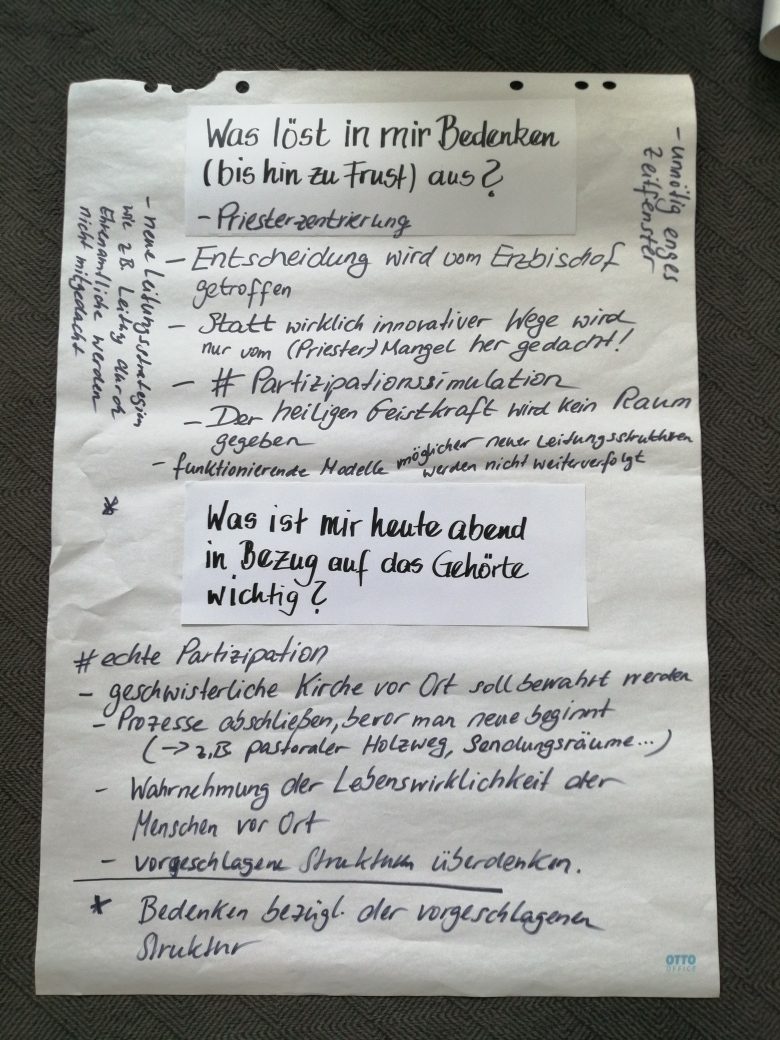 Was löst in mir Bedenken
(bis hin zu Frust) aus?
- Priesterzentrierung
- Entscheidung wird vom Erzbischof
getroffen
- Statt wirklich innovativer Wege wird
nur vom (Priester-) Mangel her gedacht!
- # Partizipationssimulation
- Der heiligen Geistkraft wird kein Raum
gegeben
- funktionierende Modelle möglicher neuer Leitungsstrukturen
werden nicht weiterverfolgt
- unnötig enges
Zeitfenster
- neue Leitungsstrategien
wie z.B. Leitung durch
Ehrenamtliche werden
nicht mitgedacht
*
Was ist mir heute abend
in Bezug auf das Gehörte
wichtig?
# echte Partizipation
- geschwisterliche Kirche vor Ort soll bewahrt werden
- Prozesse abschließen, bevor man neue beginnt
(-> z.B. pastoraler Holzweg, Sendungsräume...)
- Wahrnehmung der Lebenswirklichkeit der
Menschen vor Ort
- vorgeschlagene Strukturen überdenken.
* Bedenken bezügl. der vorgeschlagenen
Struktur
OTTO
OFFICE